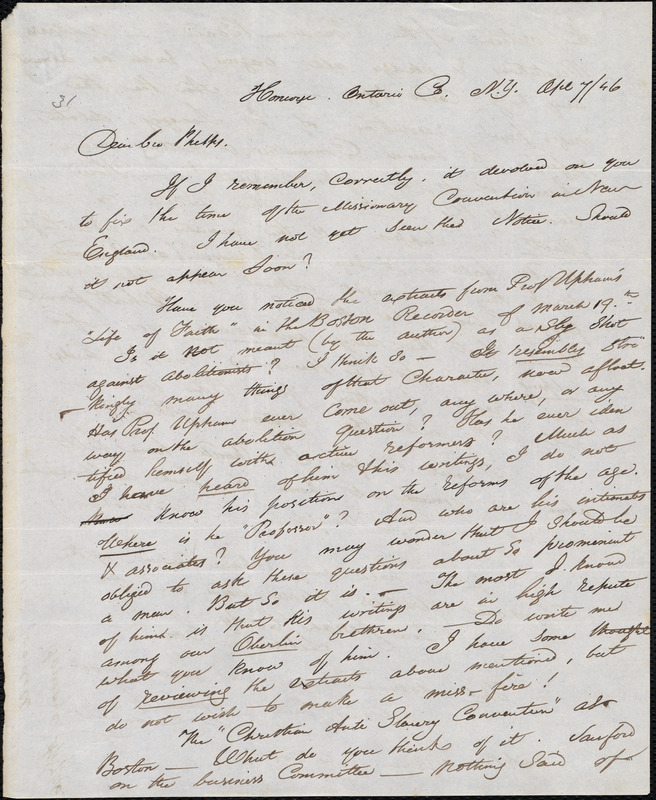 31
Honeoye. Ontario Co. N.Y. Apl 7/46
Dear bro Phelps.
If I remember, correctly, it devolved on you
to fix the time of the Missionary Convention in New
England. I have not yet seen the Notice. Should
it not appear soon?
Have you noticed the extracts from Prof Upham's
"Life of Faith" in the Boston Recorder of March 19.th
Is it not meant (by the author) as a sly shot
against abolitionists? I think so — It resembles stri
-kingly many things of that Character, now afloat.
Has Prof. Upham ever come out, any where, or any
way on the abolition question? Has he ever iden
tified himself with active reformers? Much as
I have heard of him & his writings, I do not
know his position on the reforms of the age.
Where is he "Professor"? And who are his intimates
& associates? You may wonder that I should be
obliged to ask these questions about so prominent
a man. But so it is. — The most I know
of him is that his writings are in high repute
among our Oberlin brethren. — Do write me
what you know of him. I have some thought
of reviewing the extracts above mentioned, but
do not wish to make a miss-fire!
The "Christian Anti Slavery Convention" at
Boston — What do you think of it. Sanford
on the business Committee — nothing said of